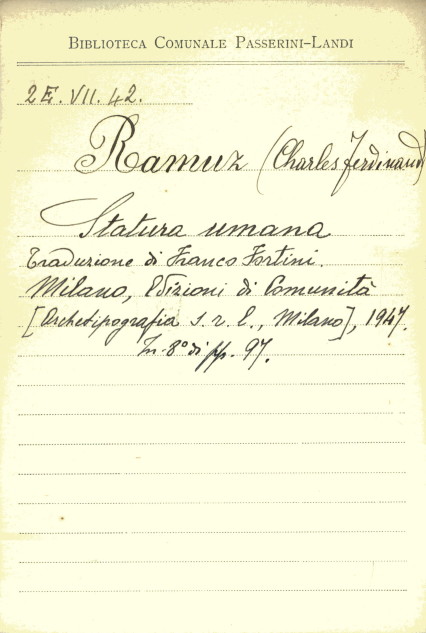 BIBLIOTECA COMUNALE PASSERINI-LANDI
2E. VII. 42.
Ramuz (Charles Ferdinand)
Statura umana
Traduzione di Franco Fortini.
Milano, Edizioni di Comunità
[Archetipografia s. r. l., Milano], 1947.
In-8° di pp. 97.